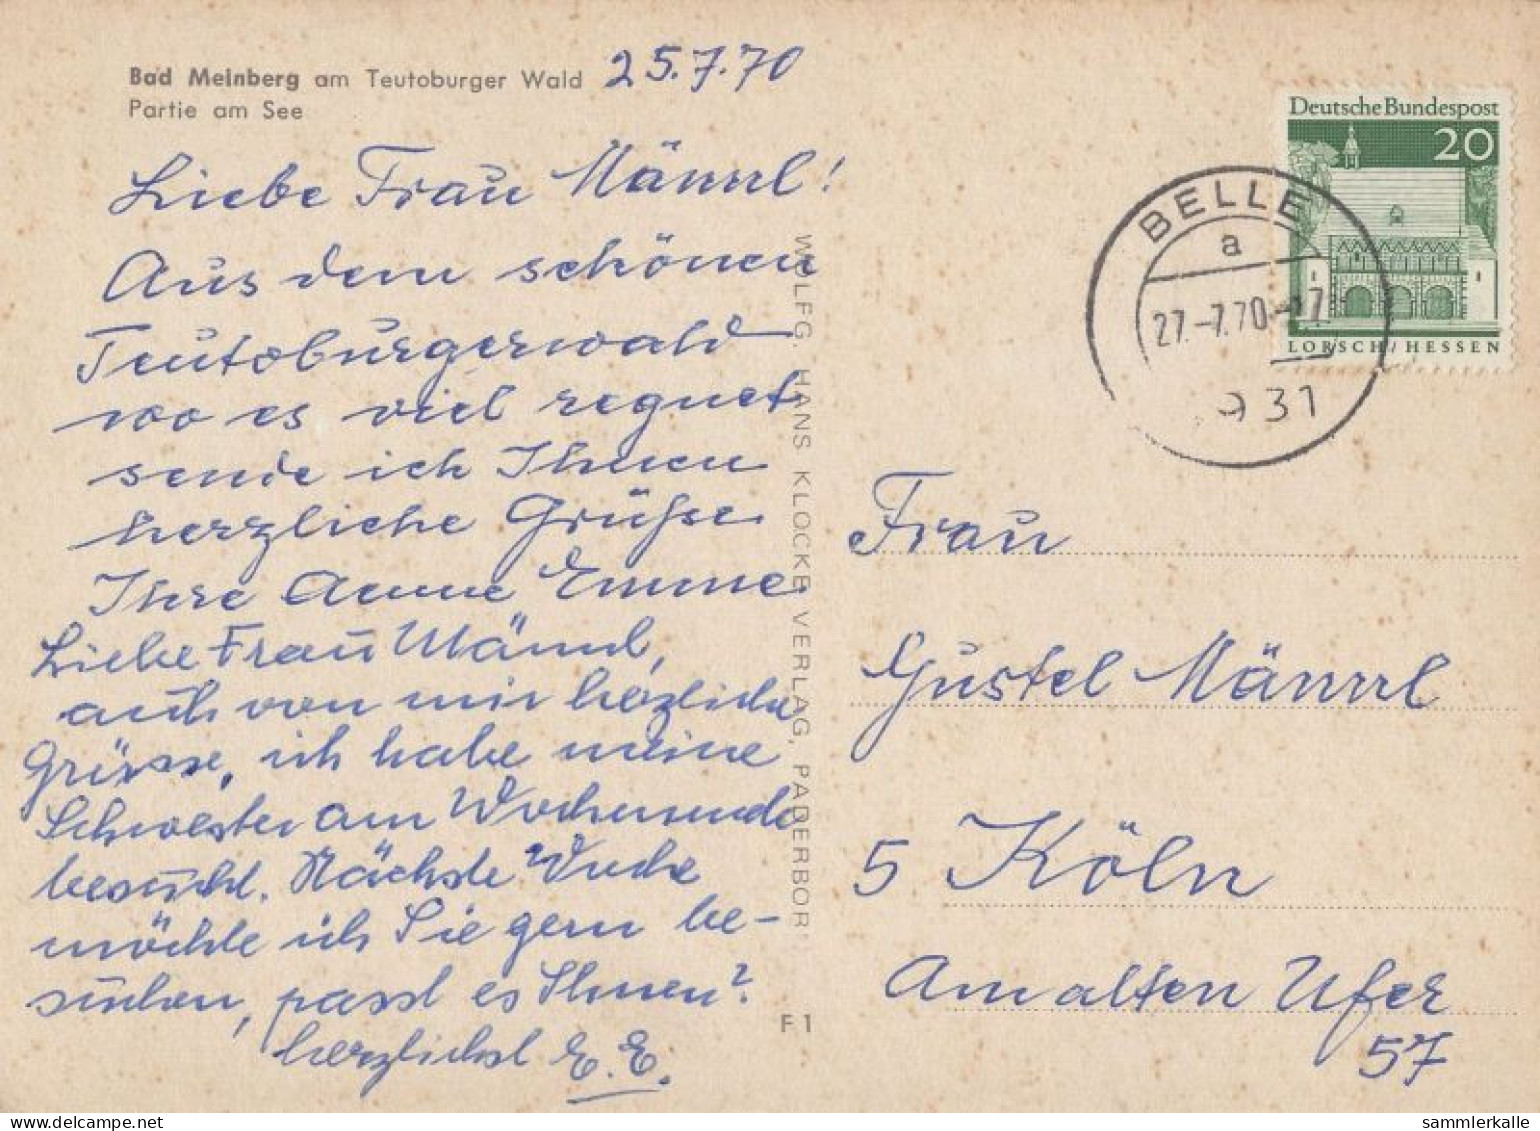 Bad Meinberg am Teutoburger Wald
Partie am See
25.7.70
Liebe Frau Männl!
Aus dem schönen
Teutoburgerwald
wo es viel regnet
sende ich Ihnen
herzliche Grüße.
Ihre Aenne Emme.
Liebe Frau Männl,
auch von mir herzliche
Grüsse, ich habe meine
Schwester am Wochenende
besucht. Nächste Woche
möchte ich Sie gern be-
suchen, passt es Ihnen?
herzlichst E. E.
WOLFG. HANS KLOCKE VERLAG, PADERBORN
F 1
Deutsche Bundespost
20
LORSCH/HESSEN
BELLE
a
27.-7.70.-17
4931
Frau
Gustel Männl
5 Köln
Am alten Ufer
57
delcampe.net
sammlerkalle